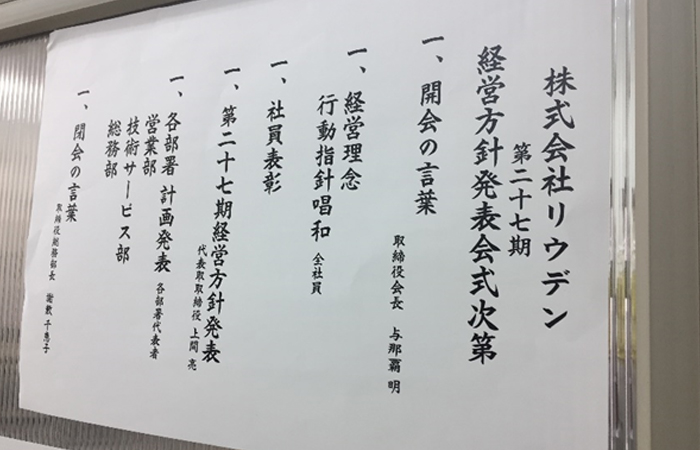 株式会社リウデン
第二十七期
経営方針発表会式次第
一、開会の言葉
取締役会長 与那覇 明
一、経営理念
行動指針唱和 全社員
一、社員表彰
一、第二十七期経営方針発表
代表取取締役 上間 亮
一、各部署 計画発表 各部署代表者
営業部
技術サービス部
総務部
一、閉会の言葉
取締役総務部長 謝敷 千恵子